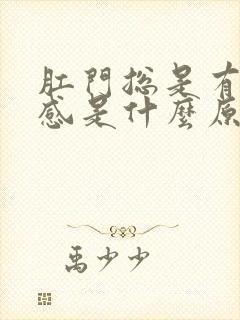 肛門總是有
感是什麼原
禹少少